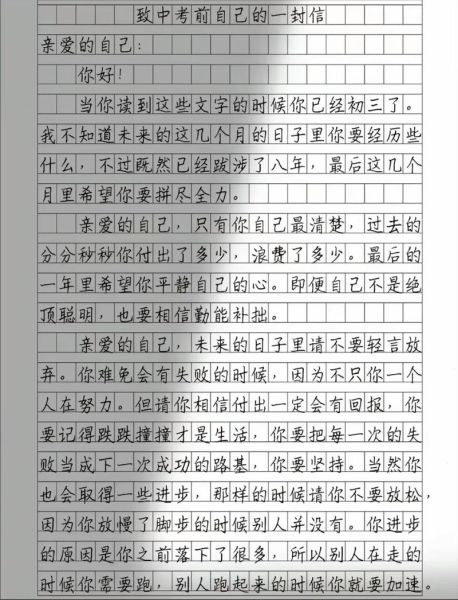 致中考前自己的一封信
亲爱的自己：
你好！
当你读到这些文字的时候你已经初三了。
我不知道未来的这几个月的日子里你要经历些
什么，不过既然已经跋涉了八年，最后这几个
月里希望你要拼尽全力。
亲爱的自己，只有你自己最清楚，过去的
分分秒秒你付出了多少，浪费了多少。最后的
一年里希望你平静自己的心。即便自己不是绝
顶聪明，也要相信勤能补拙。
亲爱的自己，未来的日子里请不要轻言放
弃。你难免会有失败的时候，因为不只你一个
人在努力。但请你相信付出一定会有回报，你
要记得跌跌撞撞才是生活，你要把每一次的失
败当成下一次成功的路基，你要坚持。当然你
也会取得一些进步，那样的时候请你不要放松，
因为你放慢了脚步的时候别人并没有。你进步
的原因是你之前落下了很多，所以别人在走的
时候你需要跑，别人跑起来的时候你就要加速。